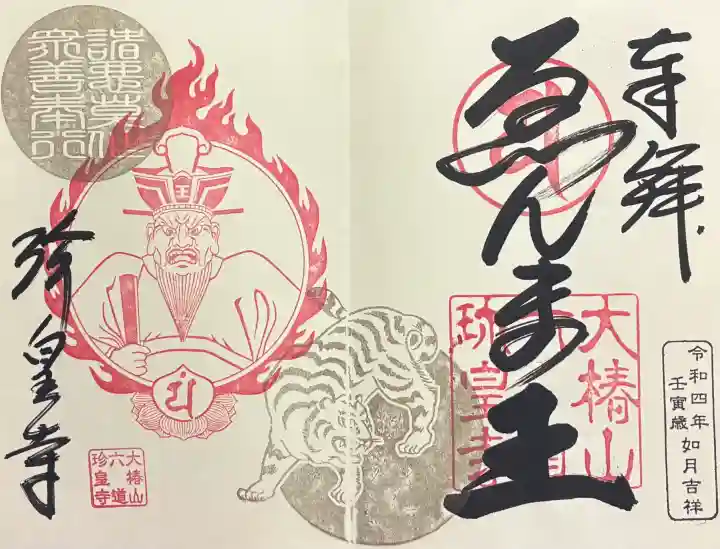 奉拝
ゑんま王
大椿山
六道
珍皇寺
令和四年
壬寅歳
如月吉祥
諸悪莫作
衆善奉行
王
珍皇寺
大椿山
六道
珍皇寺